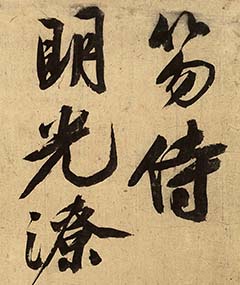 笏侍
明光潦